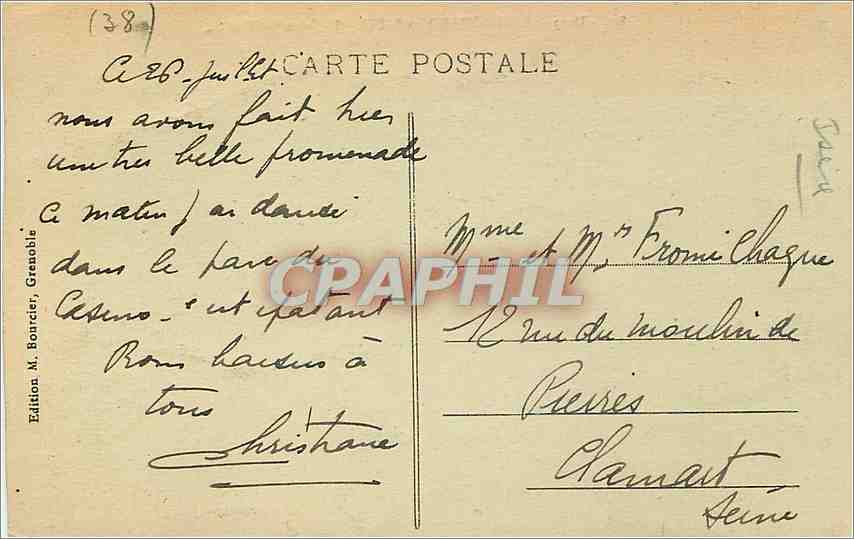 (38)
CARTE POSTALE
Ce 26 - Juillet
nous avons fait hier
une tres belle promenade
Ce matin j'ai dansé
dans le parc du
Casino - c'est épatant
Bons baisers à
tous
Christiane
Edition M. Bourcier, Grenoble
CPAPHIL
Isère
Mme et Mr Fromi Chaque
12 rue du moulin de
Pierres
Clamart
Seine